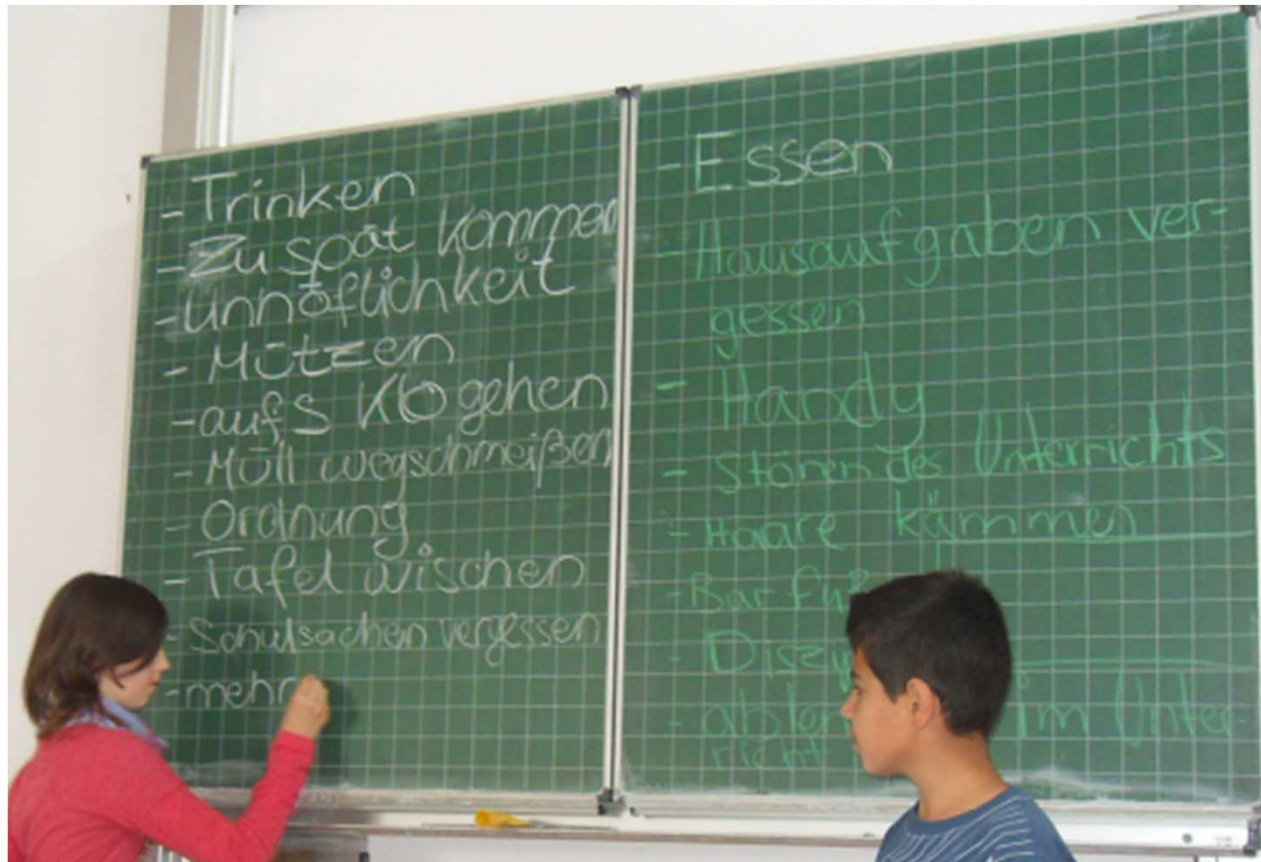 - Trinken
- Zu spät kommen
- Unhöflichkeit
- Mützen
- aufs Klo gehen
- Müll wegschmeißen
- Ordnung
- Tafel wischen
- Schulsachen vergessen
- mehr
- Essen
- Hausaufgaben ver-
gessen
- Handy
- Stören des Unterrichts
- Haare kämmen
- im Unter-
richt